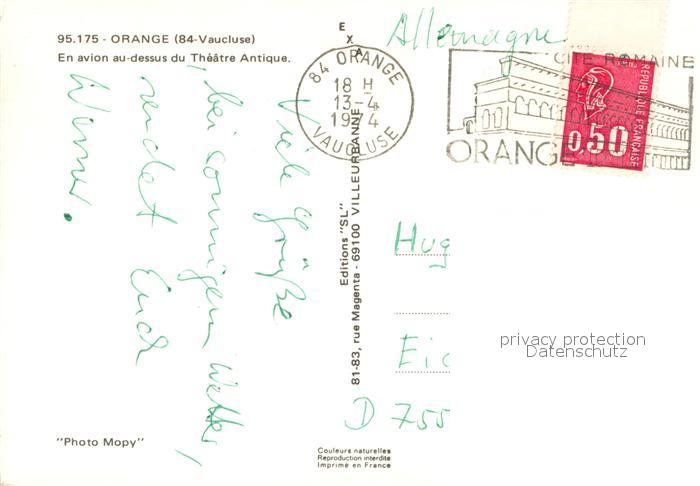 95.175 - ORANGE (84-Vaucluse)
En avion au-dessus du Théâtre Antique.
Viele Grüße
bei sonnigem Wetter,
sendet Euch
Werner.
"Photo Mopy"
EXA
Editions "SL"
81-83, rue Magenta - 69100 VILLEURBANNE
Couleurs naturelles
Reproduction interdite
Imprimé en France
84 ORANGE
18 H
13-4
1974
VAUCLUSE
Allemagne
CITÉ ROMAINE
ORANGE
REPUBLIQUE FRANÇAISE
0,50
Hug
Eic
D 755
privacy protection
Datenschutz